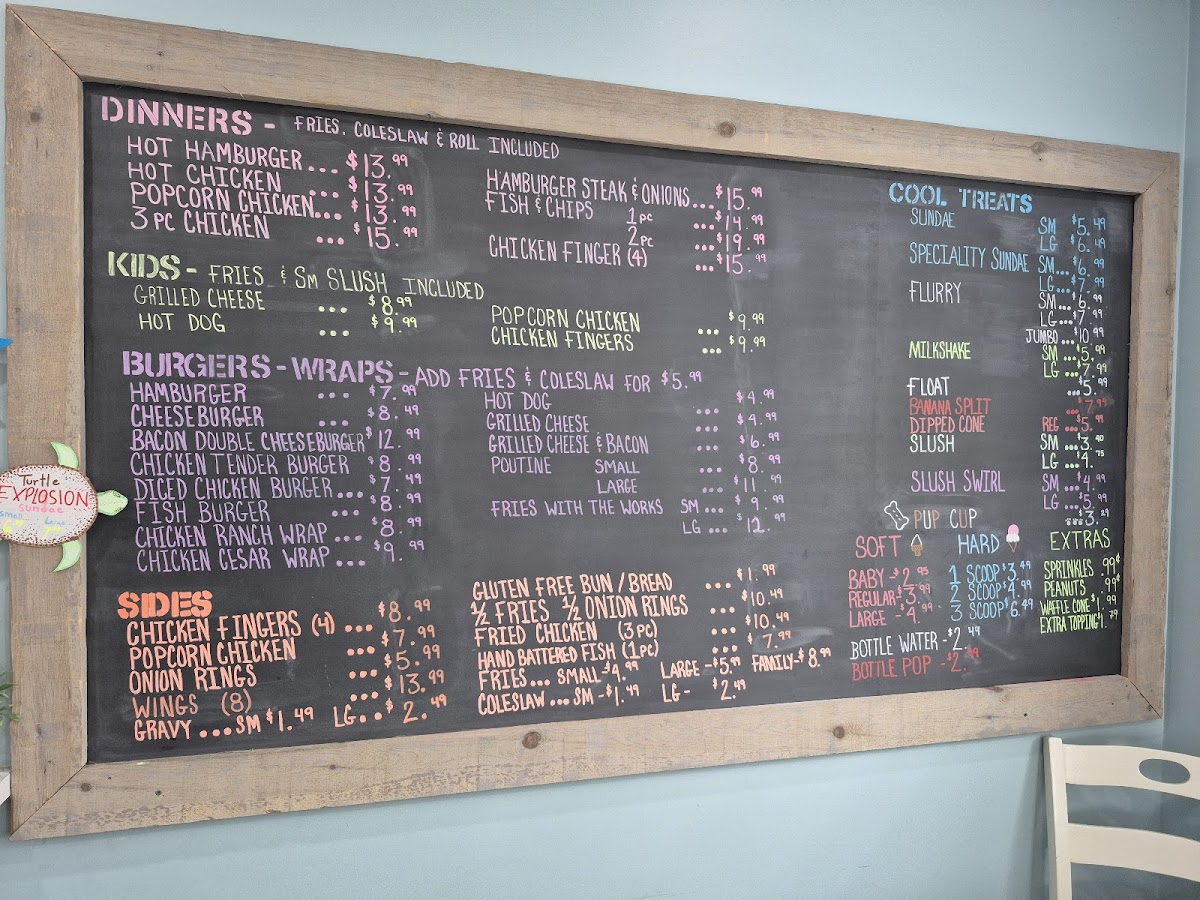 DINNERS - FRIES, COLESLAW & ROLL INCLUDED
HOT HAMBURGER... $13.99
HOT CHICKEN ... $13.99
POPCORN CHICKEN... $13.99
3 PC CHICKEN ... $15.99
HAMBURGER STEAK & ONIONS... $15.99
FISH & CHIPS 1 PC ... $14.99
2 PC ... $19.99
CHICKEN FINGER (4) ... $15.99
KIDS - FRIES & SM SLUSH INCLUDED
GRILLED CHEESE ... $8.99
HOT DOG ... $9.99
POPCORN CHICKEN ... $9.99
CHICKEN FINGERS ... $9.99
BURGERS - WRAPS - ADD FRIES & COLESLAW FOR $5.99
HAMBURGER ... $7.99
CHEESEBURGER ... $8.49
BACON DOUBLE CHEESEBURGER $12.99
CHICKEN TENDER BURGER $8.99
DICED CHICKEN BURGER... $7.49
FISH BURGER ... $8.99
CHICKEN RANCH WRAP... $8.99
CHICKEN CESAR WRAP... $9.99
HOT DOG ... $4.99
GRILLED CHEESE ... $4.99
GRILLED CHEESE & BACON ... $6.99
POUTINE SMALL ... $8.99
LARGE ... $11.49
FRIES WITH THE WORKS SM... $9.99
LG... $12.99
SIDES
CHICKEN FINGERS (4) ... $8.99
POPCORN CHICKEN ... $7.99
ONION RINGS ... $5.99
WINGS (8) ... $13.99
GRAVY ... SM $1.49 LG... $2.49
GLUTEN FREE BUN / BREAD ... $1.99
½ FRIES ½ ONION RINGS ... $10.49
FRIED CHICKEN (3 PC) ... $10.49
HAND BATTERED FISH (1 PC) ... $7.99
FRIES... SMALL-$4.99 LARGE-$5.99 FAMILY-$8.99
COLESLAW... SM-$1.49 LG- $2.49
COOL TREATS
SUNDAE SM $5.49
LG $6.49
SPECIALITY SUNDAE SM... $6.99
LG... $7.99
FLURRY SM... $6.99
LG... $7.99
JUMBO... $10.99
MILKSHAKE SM ... $5.99
LG ... $7.99
FLOAT ... $5.99
BANANA SPLIT ... $7.99
DIPPED CONE REG ... $5.99
SLUSH SM... $3.40
LG... $4.75
SLUSH SWIRL SM... $4.99
LG... $5.99
PUP CUP ... $3.29
SOFT
BABY - $2.95
REGULAR - $3.99
LARGE - $4.99
HARD
1 SCOOP $3.49
2 SCOOP $4.99
3 SCOOP $6.49
EXTRAS
SPRINKLES .99¢
PEANUTS .99¢
WAFFLE CONE $1.99
EXTRA TOPPING $1.79
BOTTLE WATER - $2.49
BOTTLE POP - $2.
Turtle
EXPLOSION
sundae
small